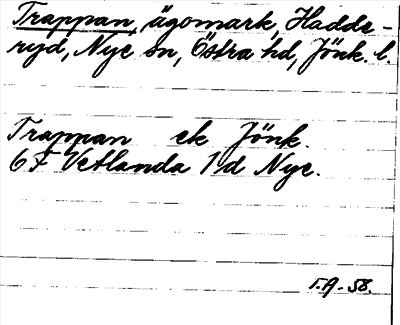 Trappan, ägomark, Hadde-
ryd, Nye sn, Östra hd, Jönk. l.
Trappan ek Jönk.
6 F Vetlanda 1 d Nye.
T.A. - 58.